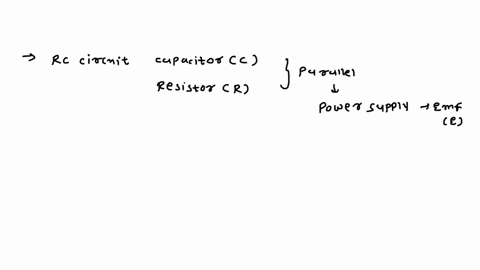 → RC circuit capacitor (C) } Parallel
Resistor (R)
↓
Power supply → Emf
(E)